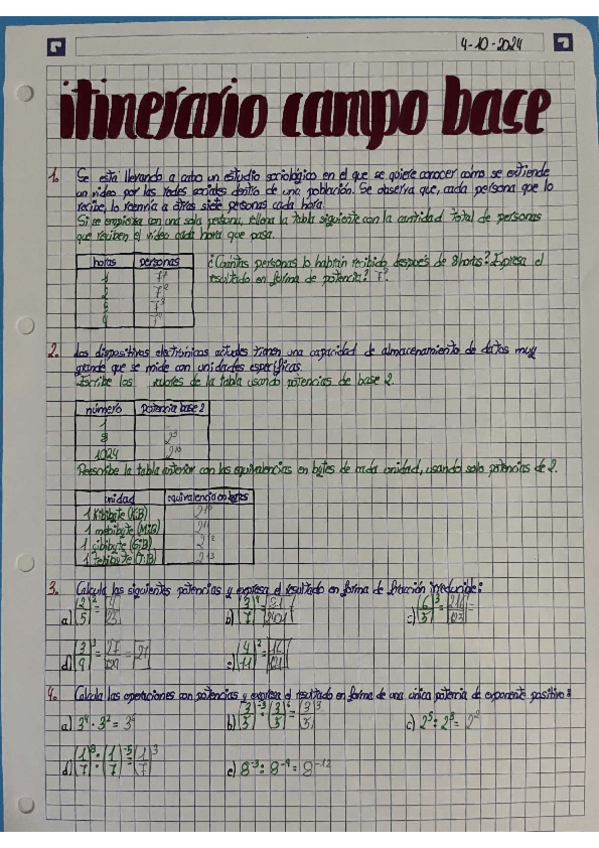 4-10-2024
itinerario campo base
1. Se está llevando a cabo un estudio sociológico en el que se quiere conocer cómo se extiende
un video por las redes sociales dentro de una población. Se observa que, cada persona que lo
recibe, lo reenvía a otras siete personas cada hora.
Si se empieza con una sola persona, rellena la tabla siguiente con la cantidad total de personas
que reciben el video cada hora que pasa.
horas personas
1
2 7²
3 7³
4
¿Cuántas personas lo habrán recibido después de 8 horas? Expresa el
resultado en forma de potencia?
2. Los dispositivos electrónicos actuales tienen una capacidad de almacenamiento de datos muy
grande que se mide con unidades específicas.
Escribe los valores de la tabla usando potencias de base 2.
número potencia base 2
1
8
1024 2¹⁰
Reescribe la tabla anterior con las equivalencias en bytes de cada unidad, usando solo potencias de 2.
unidad equivalencia en bytes
1 Kibibyte (KiB) 2¹⁰
1 mebibyte (MiB) 2¹¹
1 gibibyte (GiB) 2¹²
1 Tebibyte (TiB) 2¹³
3. Calcula las siguientes potencias y expresa el resultado en forma de fracción irreducible:
a) (2/5)² = 4/25 b) (3/7)⁴ = 81/2401 c) (6/5)³ = 216/125 =
d) (3/9)³ = 27/729 = 21 e) (4/11)² = 16/121
4. Calcula las operaciones con potencias y expresa el resultado en forma de una única potencia de exponente positivo:
a) 3⁴ · 3² = 3⁶ b) (3/5)⁻³ · (3/5)⁶ = (3/5)³ c) 2⁵ : 2³ = 2²
d) (1/7)⁸ · (1/7)⁻⁵ = (1/7)³ e) 8⁻³ : 8⁻⁴ = 8⁻¹²